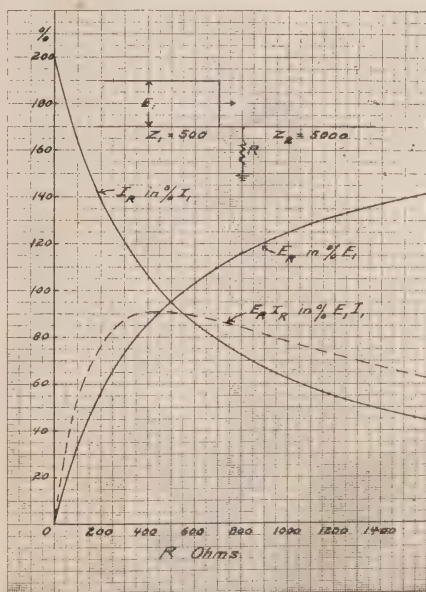 %
200
180
160
140
120
100
80
60
40
20
0
E,
Z₁ = 500
Z₂ = 5000
R
I_R in % I₁
E_R in % E₁
E_R I_R in % E₁ I₁
200
400
600
800
1000
1200
1400
R Ohms.